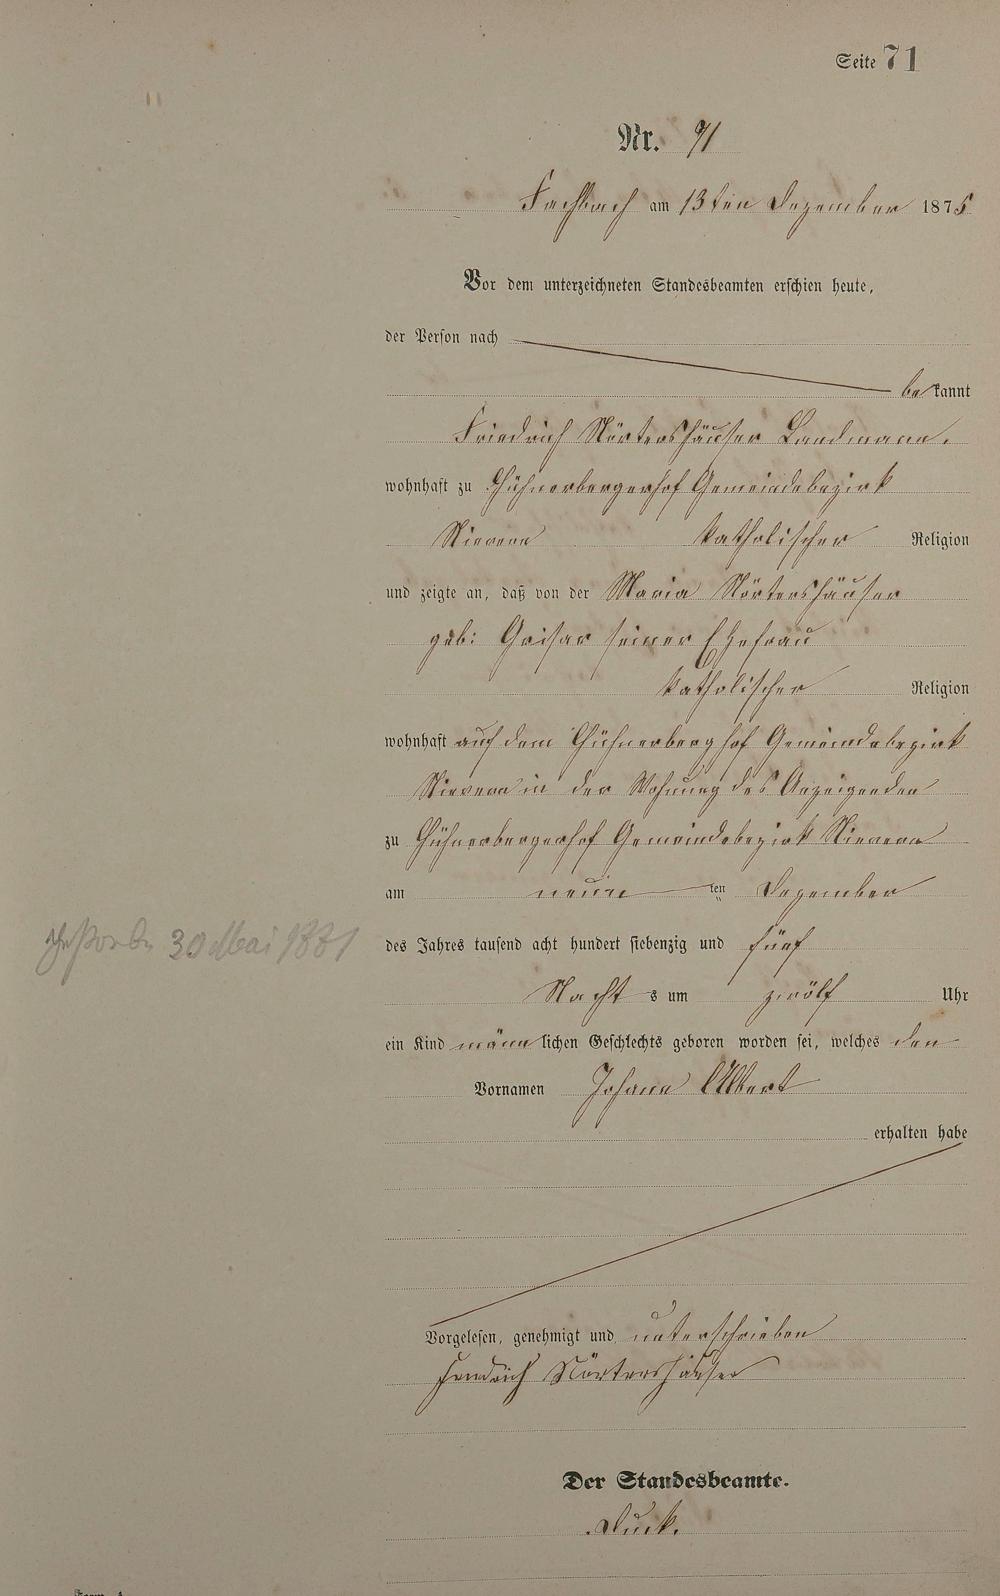 Seite 71
Nr. 71
Fachbach am 13ten Dezember 1875
Vor dem unterzeichneten Standesbeamten erschien heute,
der Person nach
bekannt
Friedrich Nörtershäuser Landmann.
wohnhaft zu Hühnerbergerhof Gemeindebezirk
Nievern katholischer Religion
und zeigte an, daß von der Maria Nörtershäuser
geb: Grisar seiner Ehefrau
katholischer Religion
wohnhaft auf dem Hühnerberghof Gemeindebezirk
Nievern in der Wohnung des Anzeigenden
zu Hühnerbergerhof Gemeindebezirk Nievern
am neun ten Dezember
des Jahres tausend acht hundert siebenzig und fünf
Nachts um zwölf Uhr
ein Kind männlichen Geschlechts geboren worden sei, welches den
Vornamen Johann Albert
erhalten habe
Vorgelesen, genehmigt und unterschrieben
Friedrich Nörtershäuser
Der Standesbeamte.
Duck.
30 Mai 1881